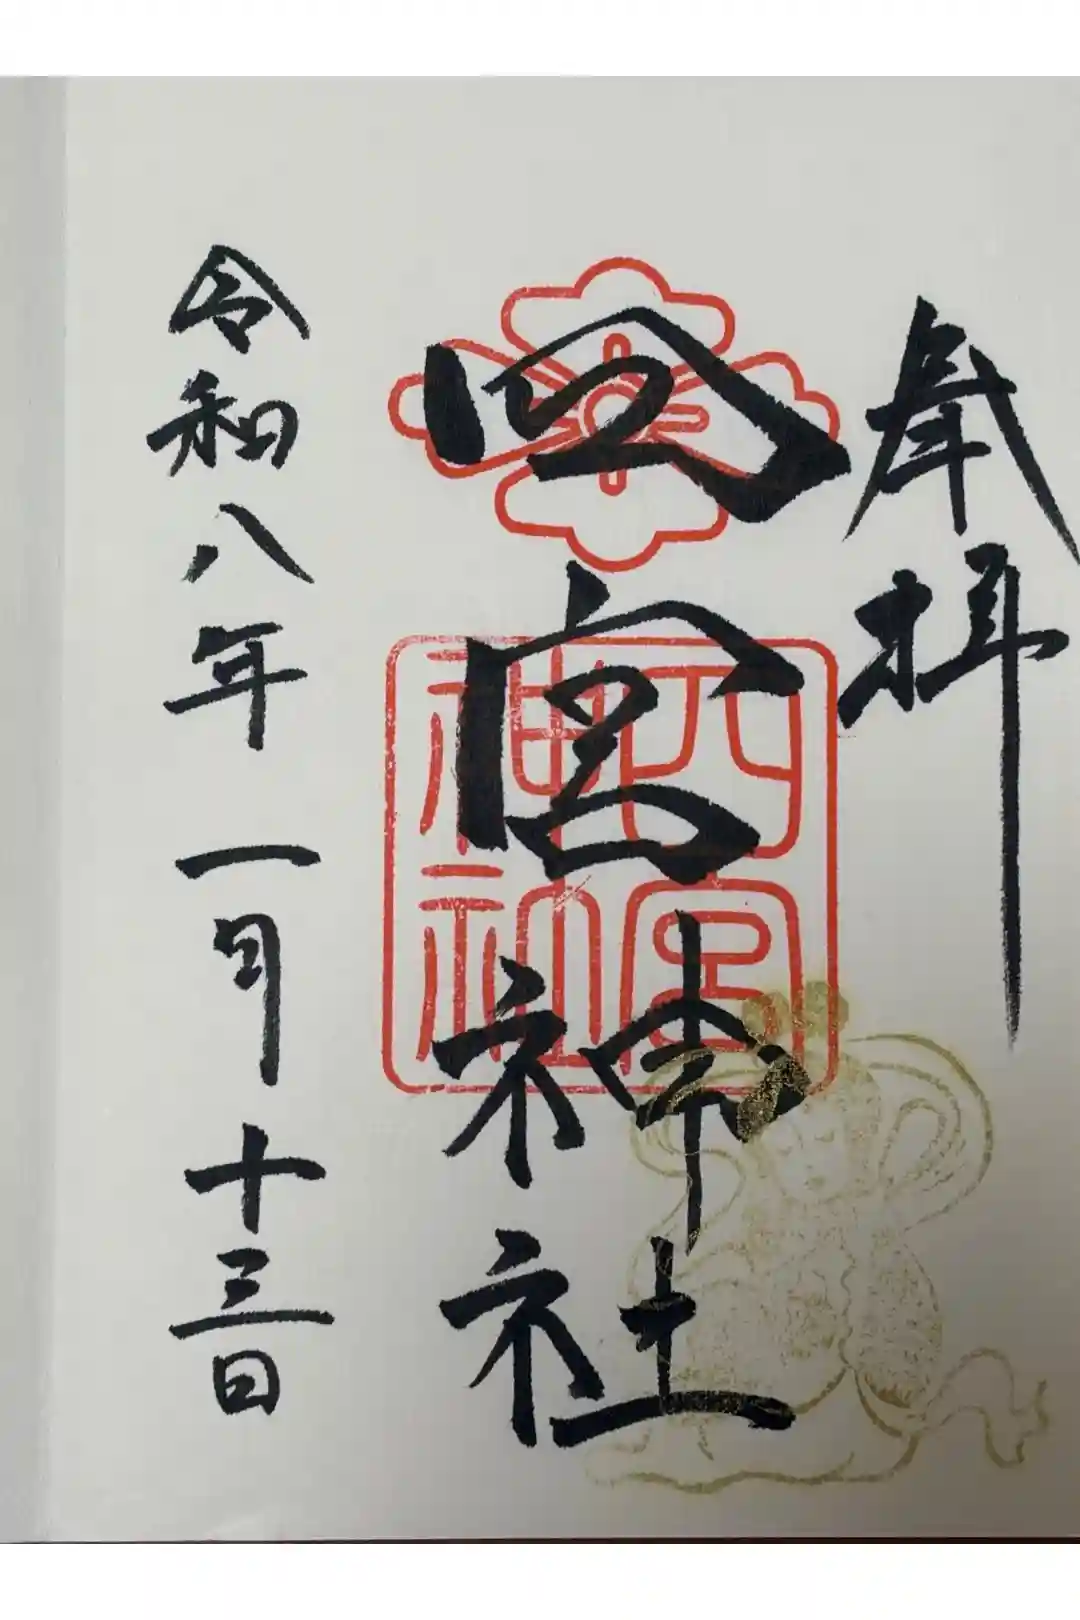 奉拝
四宮神社
四宮神社
令和八年一月十三日